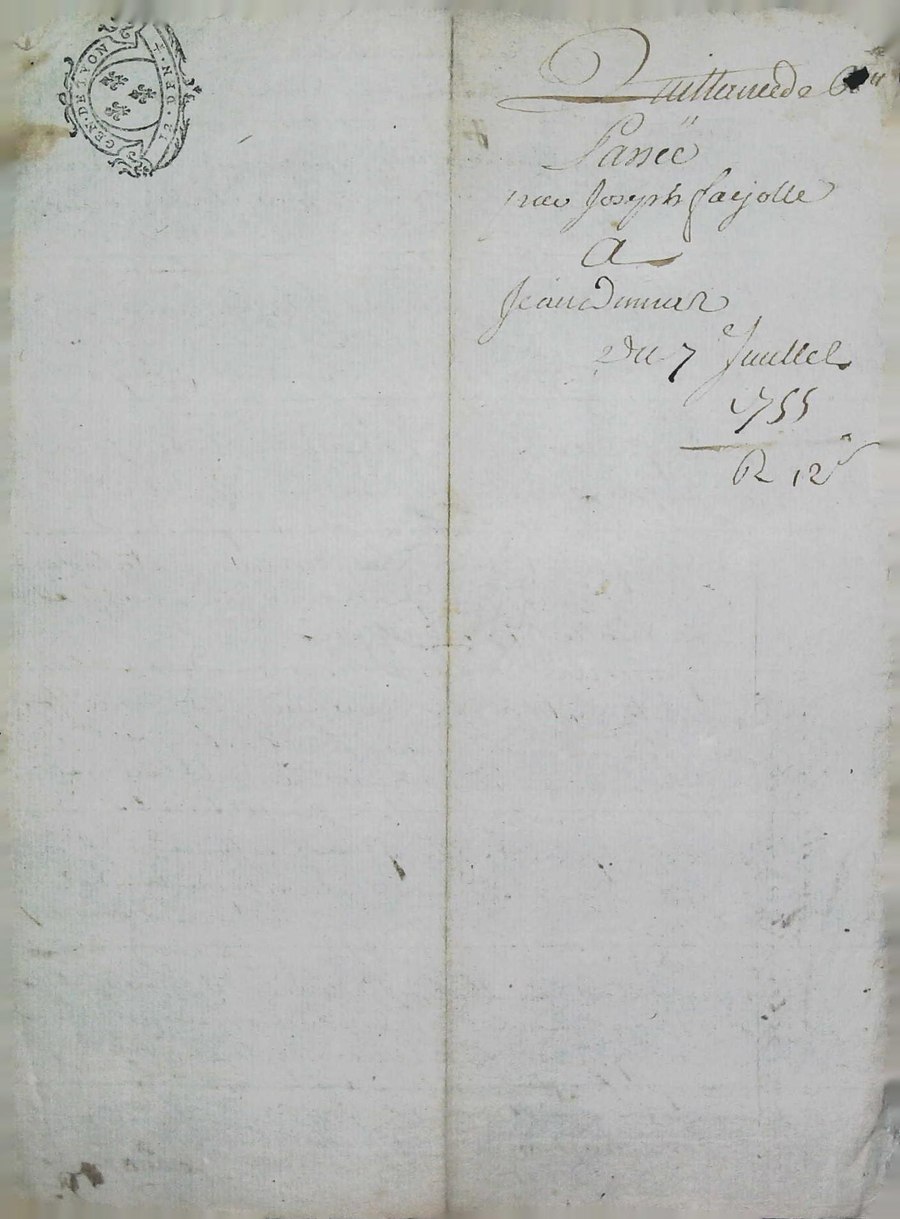 GEN·DE LYON
Quittance de
Passée
par Joseph farjolle
A
Jean Dumas
Du 7 Juillet
1755
R 12ˢ